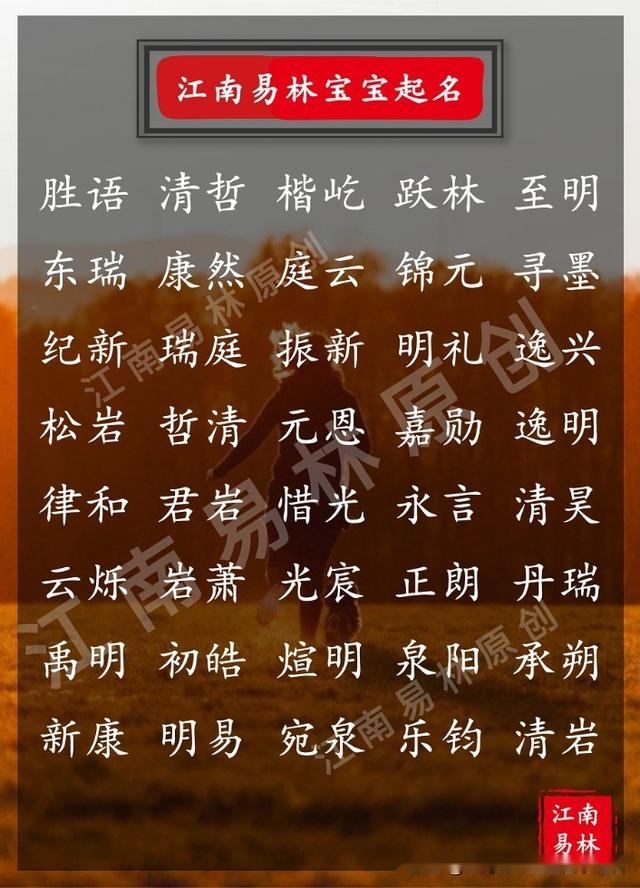 江南易林宝宝起名
胜语 清哲 楷屹 跃林 至明
东瑞 康然 庭云 锦元 寻墨
纪新 瑞庭 振新 明礼 逸兴
松岩 哲清 元恩 嘉勋 逸明
律和 君岩 惜光 永言 清昊
云烁 岩萧 光宸 正朗 丹瑞
禹明 初皓 煊明 泉阳 承朔
新康 明易 宛泉 乐钧 清岩
江南易林原创
江南易林原创
江南易林原创
江南
易林